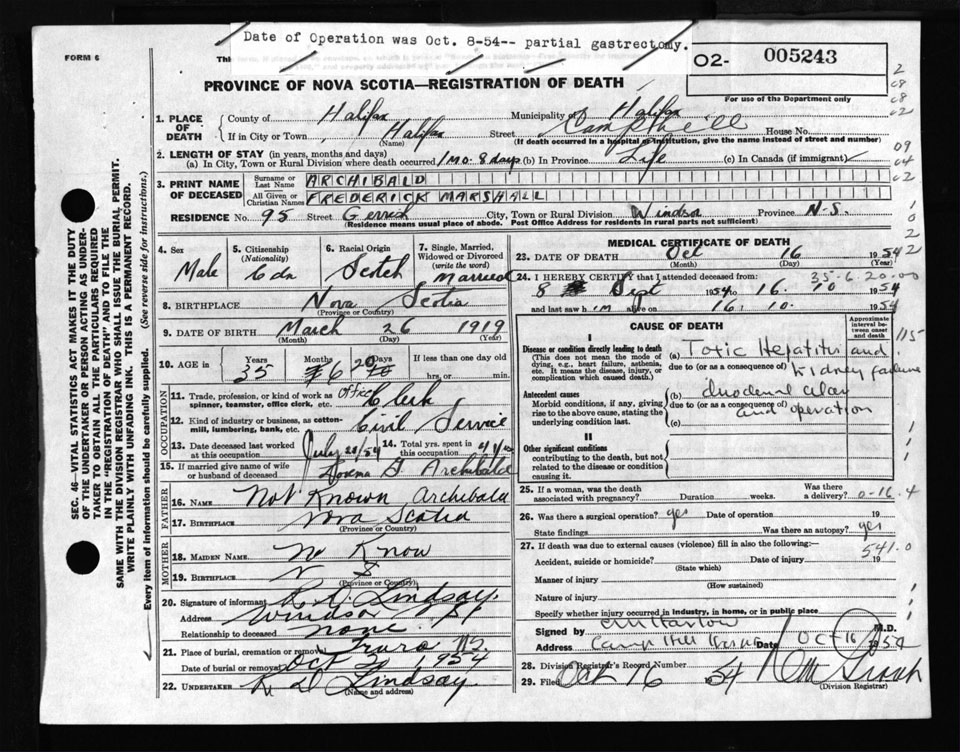 Date of Operation was Oct. 8-54-- partial gastrectomy.
FORM 6
02- 005243
For use of the Department only
PROVINCE OF NOVA SCOTIA—REGISTRATION OF DEATH
1. PLACE OF DEATH
County of Halifax Municipality of Halifax
If in City or Town Halifax Street Camp Hill House No.
(Name) (If death occurred in a hospital or institution, give the name instead of street and number)
2. LENGTH OF STAY (in years, months and days)
(a) In City, Town or Rural Division where death occurred 1 mo. 8 days (b) In Province Life (c) In Canada (if immigrant)
3. PRINT NAME OF DECEASED
Surname or Last Name ARCHIBALD
All Given or Christian Names FREDERICK MARSHALL
RESIDENCE No. 95 Street Gerrish City, Town or Rural Division Windsor Province N.S.
(Residence means usual place of abode. Post Office Address for residents in rural parts not sufficient)
4. Sex Male
5. Citizenship (Nationality) Cdn
6. Racial Origin Scotch
7. Single, Married, Widowed or Divorced (write the word) Married
8. BIRTHPLACE Nova Scotia
(Province or Country)
9. DATE OF BIRTH March 26 1919
(Month) (Day) (Year)
10. AGE Years 35 Months 6 Days 20 If less than one day old hrs. or min.
OCCUPATION
11. Trade, profession, or kind of work as spinner, teamster, office clerk, etc. Office Clerk
12. Kind of industry or business, as cotton-mill, lumbering, bank, etc. Civil Service
13. Date deceased last worked at this occupation July 28/54
14. Total yrs. spent in this occupation
15. If married give name of wife or husband of deceased Archibald
FATHER
16. NAME Not Known Archibald
17. BIRTHPLACE Nova Scotia
(Province or Country)
MOTHER
18. MAIDEN NAME No Know
19. BIRTHPLACE N S
(Province or Country)
20. Signature of informant Lindsay
Address Windsor
Relationship to deceased none
21. Place of burial, cremation or removal Truro N.S.
Date of burial or removal Oct 1954
22. UNDERTAKER Lindsay
(Name and address)
MEDICAL CERTIFICATE OF DEATH
23. DATE OF DEATH Oct 16 1954
(Month) (Day) (Year)
24. I HEREBY CERTIFY that I attended deceased from:
35-6-20-00
8 Sept 1954 to 16. 10 1954
and last saw him alive on 16. 10. 1954
CAUSE OF DEATH
Approximate interval between onset and death
I
Disease or condition directly leading to death
(This does not mean the mode of dying, e.g., heart failure, asthenia, etc. It means the disease, injury, or complication which caused death.)
(a) Toxic Hepatitis and kidney failure
due to (or as a consequence of)
Antecedent causes
Morbid conditions, if any, giving rise to the above cause, stating the underlying condition last.
(b) duodenal ulcer and operation
due to (or as a consequence of)
(c)
II
Other significant conditions
contributing to the death, but not related to the disease or condition causing it.
25. If a woman, was the death associated with pregnancy? Duration weeks. Was there a delivery? 0-16.4
26. Was there a surgical operation? yes Date of operation 19
State findings Was there an autopsy? yes
27. If death was due to external causes (violence) fill in also the following:— 541.0
Accident, suicide or homicide? Date of injury 19
(State which)
Manner of injury
(How sustained)
Nature of injury
Specify whether injury occurred in industry, in home, or in public place
Signed by M.D.
Address Camp Hill Date OCT 16 1954
28. Division Registrar's Record Number
29. Filed Oct 16 1954
(Division Registrar)
SEC. 46—VITAL STATISTICS ACT MAKES IT THE DUTY OF THE UNDERTAKER OR PERSON ACTING AS UNDERTAKER TO OBTAIN ALL THE PARTICULARS REQUIRED IN THE "REGISTRATION OF DEATH" AND TO FILE THE SAME WITH THE DIVISION REGISTRAR WHO SHALL ISSUE THE BURIAL PERMIT.
WRITE PLAINLY WITH UNFADING INK. THIS IS A PERMANENT RECORD.
Every item of information should be carefully supplied. (See reverse side for instructions.)